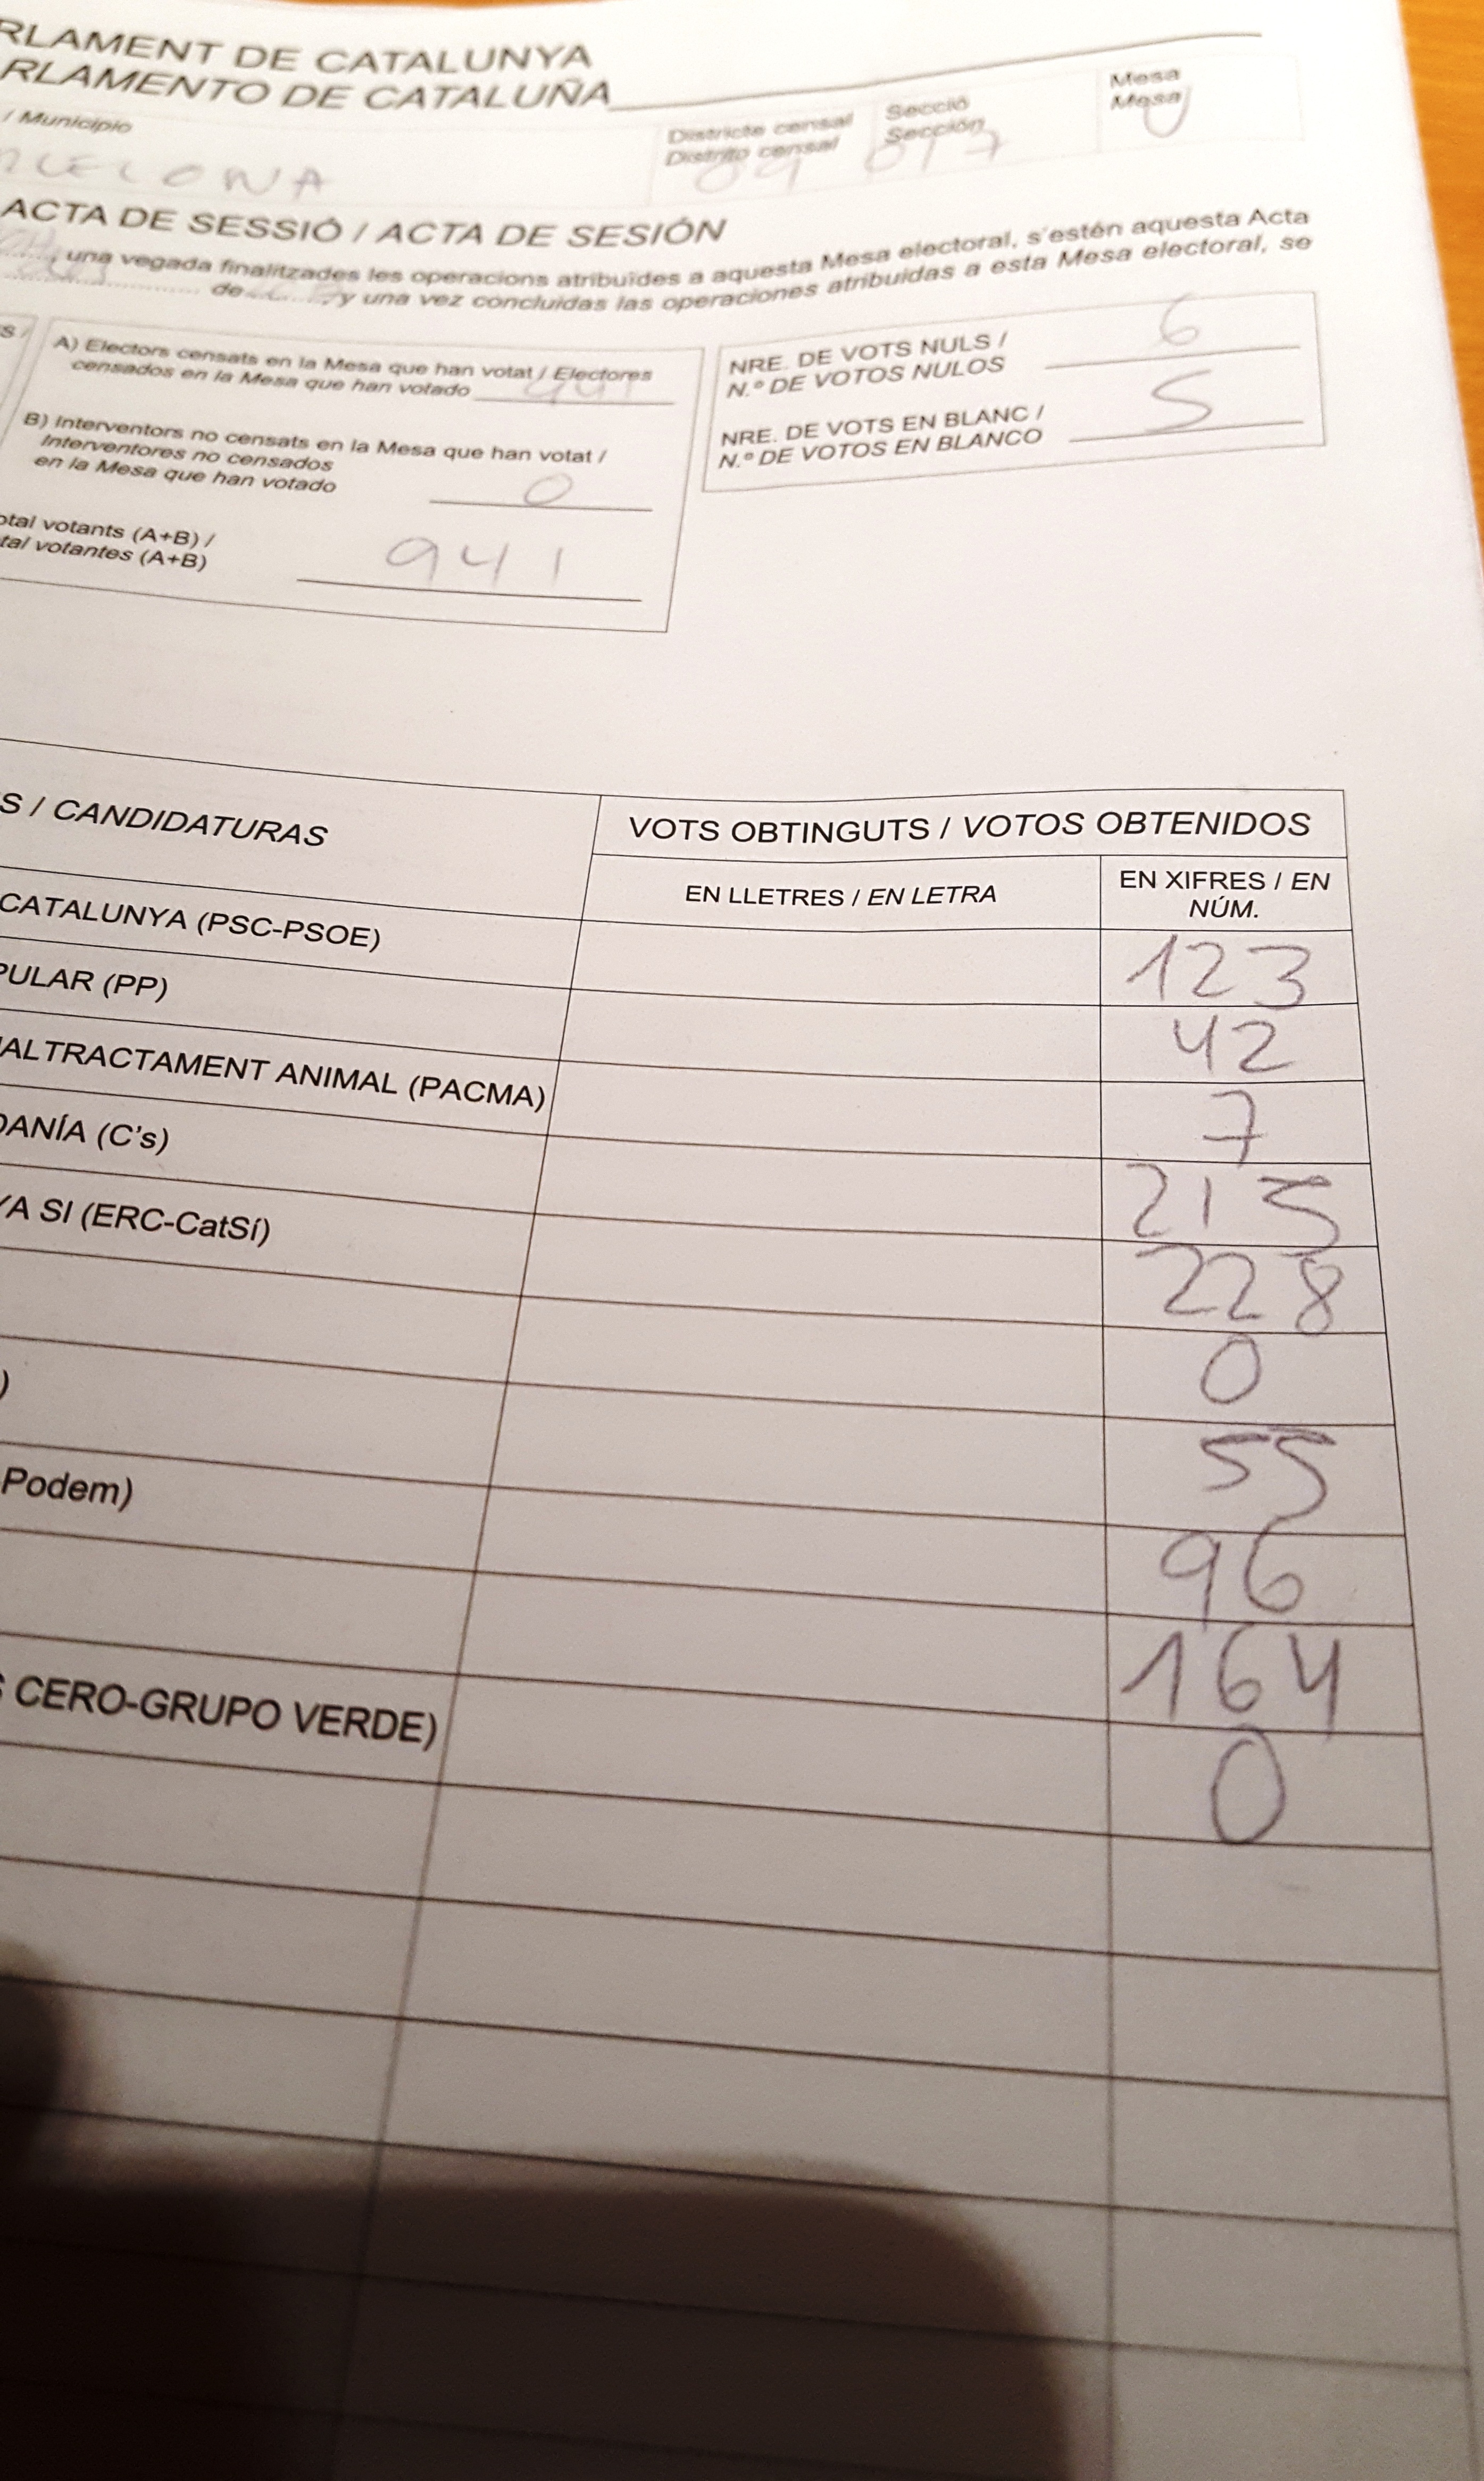 RLAMENT DE CATALUNYA
RLAMENTO DE CATALUÑA
/ Municipio
Districte censal
Distrito censal
Secció
Sección
Mesa
Mesa
RCELONA
09
017
U
ACTA DE SESSIÓ / ACTA DE SESIÓN
, una vegada finalitzades les operacions atribuïdes a aquesta Mesa electoral, s'estén aquesta Acta
de y una vez concluidas las operaciones atribuidas a esta Mesa electoral, se
S /
A) Electors censats en la Mesa que han votat / Electores
censados en la Mesa que han votado 941
B) Interventors no censats en la Mesa que han votat /
Interventores no censados
en la Mesa que han votado 0
otal votants (A+B) /
tal votantes (A+B) 941
NRE. DE VOTS NULS /
N.º DE VOTOS NULOS 6
NRE. DE VOTS EN BLANC /
N.º DE VOTOS EN BLANCO 5
S / CANDIDATURAS
VOTS OBTINGUTS / VOTOS OBTENIDOS
EN LLETRES / EN LETRA
EN XIFRES / EN
NÚM.
CATALUNYA (PSC-PSOE) 123
PULAR (PP) 42
ALTRACTAMENT ANIMAL (PACMA) 7
DANÍA (C's) 215
YA SI (ERC-CatSí) 228
0
) 55
Podem) 96
164
S CERO-GRUPO VERDE) 0